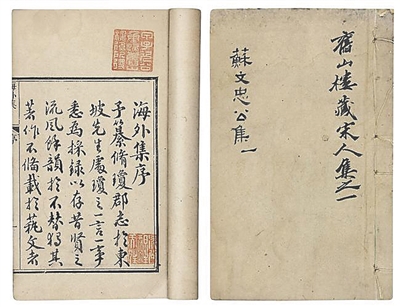 舊山樓藏宋人集之一
蘇文忠公集一
海外集序
予纂脩瓊郡志於東
坡先生處瓊之一言一事
悉為採錄以存昔賢之
流風餘韻於不替獨其
著作不備載於藝文者